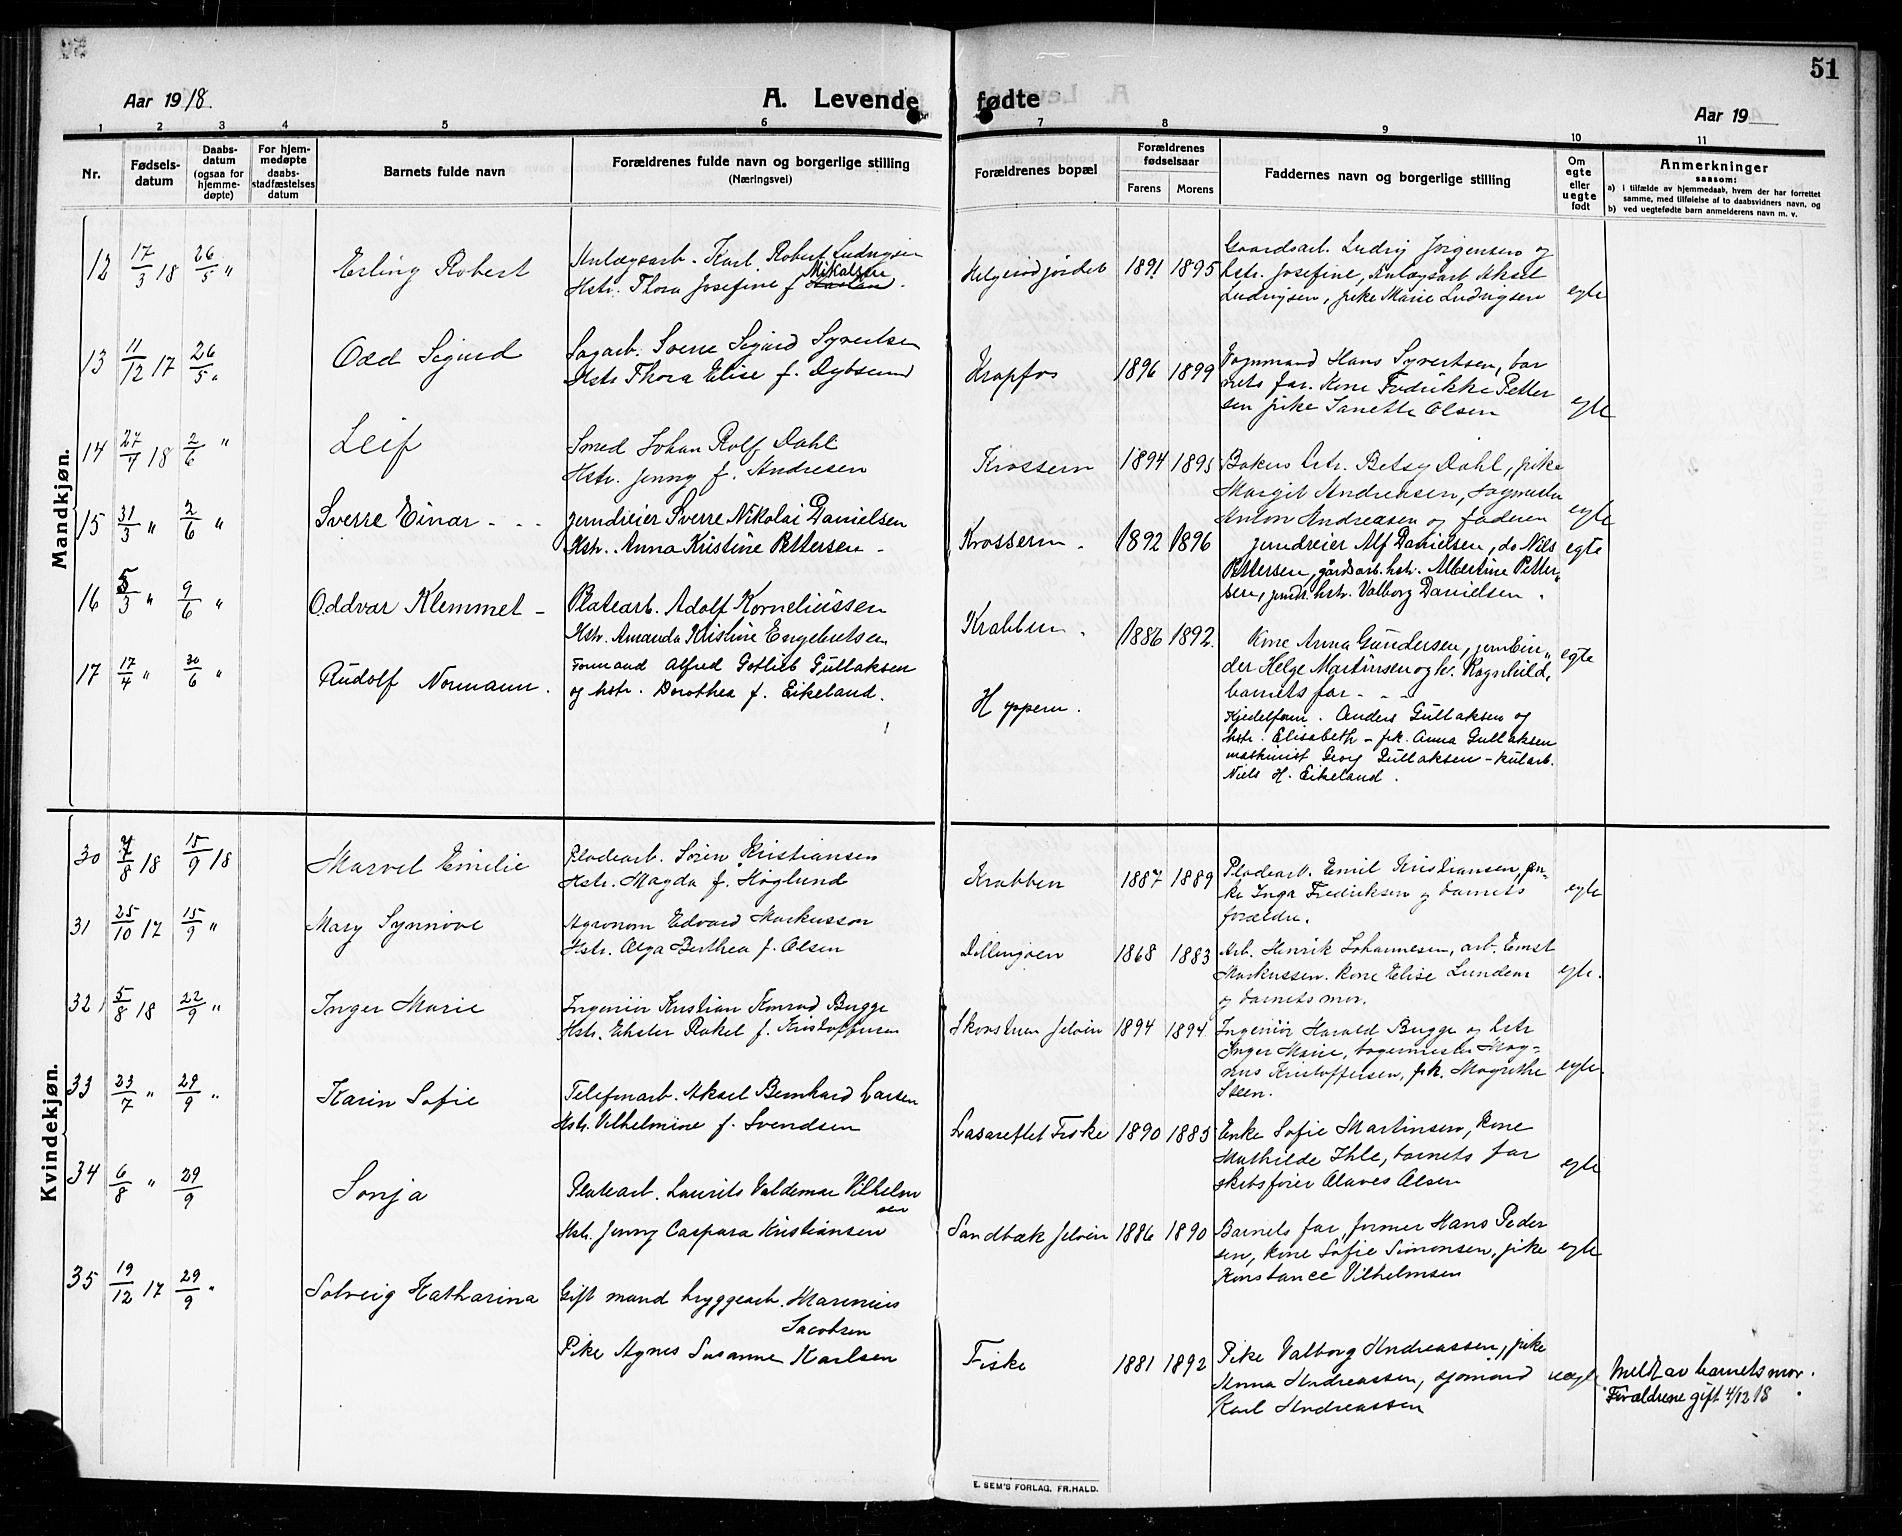 51
Aar 1918.
A. Levende fødte
Aar 19
1 2 3 4 5 6 7 8 9 10 11
Nr.
Fødsels-
datum
Daabs-
datum
(ogsaa for
hjemme-
døpte)
For hjem-
medøpte
daabs-
stadfæstelses
datum
Barnets fulde navn
Forældrenes fulde navn og borgerlige stilling
(Næringsvei)
Forældrenes bopæl
Forældrenes
fødselsaar
Farens Morens
Faddernes navn og borgerlige stilling
Om
egte
eller
uegte
født
Anmerkninger
saasom:
a) i tilfælde av hjemmedaab, hvem der har forrettet
samme, med tilføielse af to daabsvidners navn, og
b) ved uegtefødte barn anmelderens navn m. v.
Mandkjøn.
12 17/3 18 26/5 " Erling Robert
Anlægsarb. Karl Robert Ludvigsen
Mikalsen
Hstr. Thora Josefine f.
Helgerødjordet 1891 1895
Gaardsarb. Ludvig Jørgensen og
hstr. Josefine, Anlægsarb. Aksel
Ludvigsen, pike Marie Ludvigsen
egte
13 11/12 17 26/5 " Odd Sigurd
Sagarb. Sverre Sigurd Syvertsen
Hstr. Thora Elise f. Dybsund
Krapfos 1896 1899
Formand Hans Syvertsen, bar
nets far. Kone Fredrikke Petter
sen pike Janette Olsen
egte
14 27/4 18 2/6 " Leif
Smed Johan Rolf Dahl
Hstr. Jenny f. Andresen
Krossern 1894 1895
Bakers hstr. Betsy Dahl, pike
Margit Andreasen, sagmester
Anton Andreasen og faderen
egte
15 31/3 " 2/6 " Sverre Einar - - -
jerndreier Sverre Nikolai Danielsen
Hstr. Anna Kristine Pettersen -
Krossern. 1892 1896
jerndreier Alf Danielsen, do Nils
Pettersen, gårdsarb. hstr. Albertine Petter„
sen, jerndr. hstr. Valborg Danielsen.
egte
16 5/3 " 9/6 " Oddvar Klemmet -
Platearb. Adolf Korneliussen
Hstr. Amanda Kristine Engebretsen
Krabben. 1886 1892.
Kone Anna Gundersen, jernbin„
der Helge Martinsen og hv. Ragnhild,
barnets far - - -
egte
17 17/4 " 30/6 " Rudolf Normann.
Formand Alfred Gotlieb Gullaksen
og hstr. Dorothea f. Eikeland.
Hoppern.
Kjedelform. Anders Gullaksen og
hstr. Elisabeth - frk. Anna Gullaksen
maskinist Georg Gullaksen - kularb.
Niels H. Eikeland.
Kvindekjøn.
30 7/8 18 15/9 18 Marvel Emilie
Pladearb. Søren Kristiansen
Hstr. Magda f. Høglund
Krabben 1887 1889
Pladearb. Emil Kristiansen, en-
ke Inga Fredriksen og barnets
forældre.
egte
31 25/10 17 15/9 " Mary Synnøve
Agronom Edvard Markusson
Hstr. Olga Berthea f. Olsen
Dillingøen 1868 1883
Arb. Henrik Johannesen, arb. Ernst
Markussen. kone Elise Lundear
og barnets mor.
egte.
32 5/8 18 22/9 " Inger Marie
Ingeniør Kristian Konrad Bugge
Hstr. Ekster Rakel f. Kristoffersen
Jeløen 1894 1894
Ingeniør Harald Bugge og hstr
Inger Marie, bagermester Mag-
nus Kristoffersen, frk. Magrethe
Steen.
egte.
33 23/7 " 29/9 " Karin Sofie
Telefonarb. Aksel Bernhard Larsen
Hstr. Vilhelmine f. Svendsen
Lasarettet Fiske 1890 1885
Enke Sofie Martinsen, kone
Mathilde Ihle, barnets far
skibsfører Olaves Olsen
egte
34 6/8 " 29/9 Sonja
Platearb. Laurits Valdemar Vilhelm
sen
Hstr. Jenny Caspara Kristiansen
Sandbæk Jeløen 1886 1890
Barnets far, former Hans Peder
sen, kone Sofie Simonsen, pike
Konstance Vilhelmsen
egte
35 19/12 17 29/9 " Solveig Katharina
Gift mand bryggearb. Marinius
Jacobsen
Pike Agnes Susanne Karlsen
Fiske 1881 1892
Pike Valborg Andreassen, pike
Anna Andreassen, sjømand
Karl Andreassen
uegte
Meldt av barnets mor.
Forældrene gift 4/12 18.
E. SEM'S FORLAG, FR.HALD.